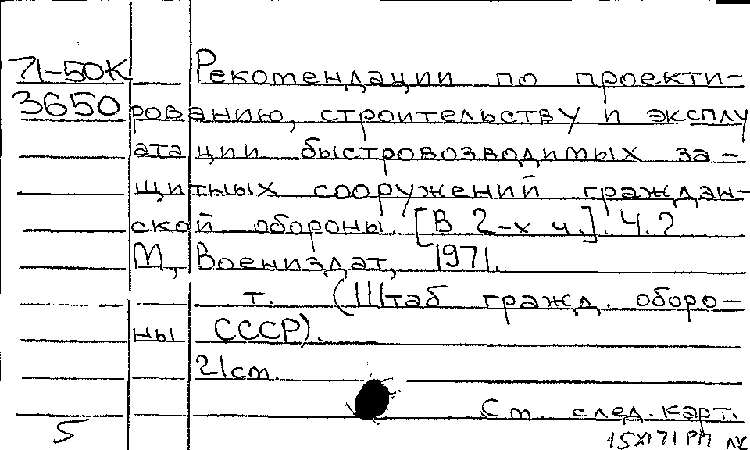 71-50К Рекомендации по проекти-
3650 рованию, строительству и эксплу
атации быстровозводимых за-
щитных сооружений граждан-
ской обороны. [В 2-х ч.]. Ч.?
М., Воениздат, 1971.
т. (Штаб гражд. оборо-
ны СССР).
21см.
См. след. карт.
5